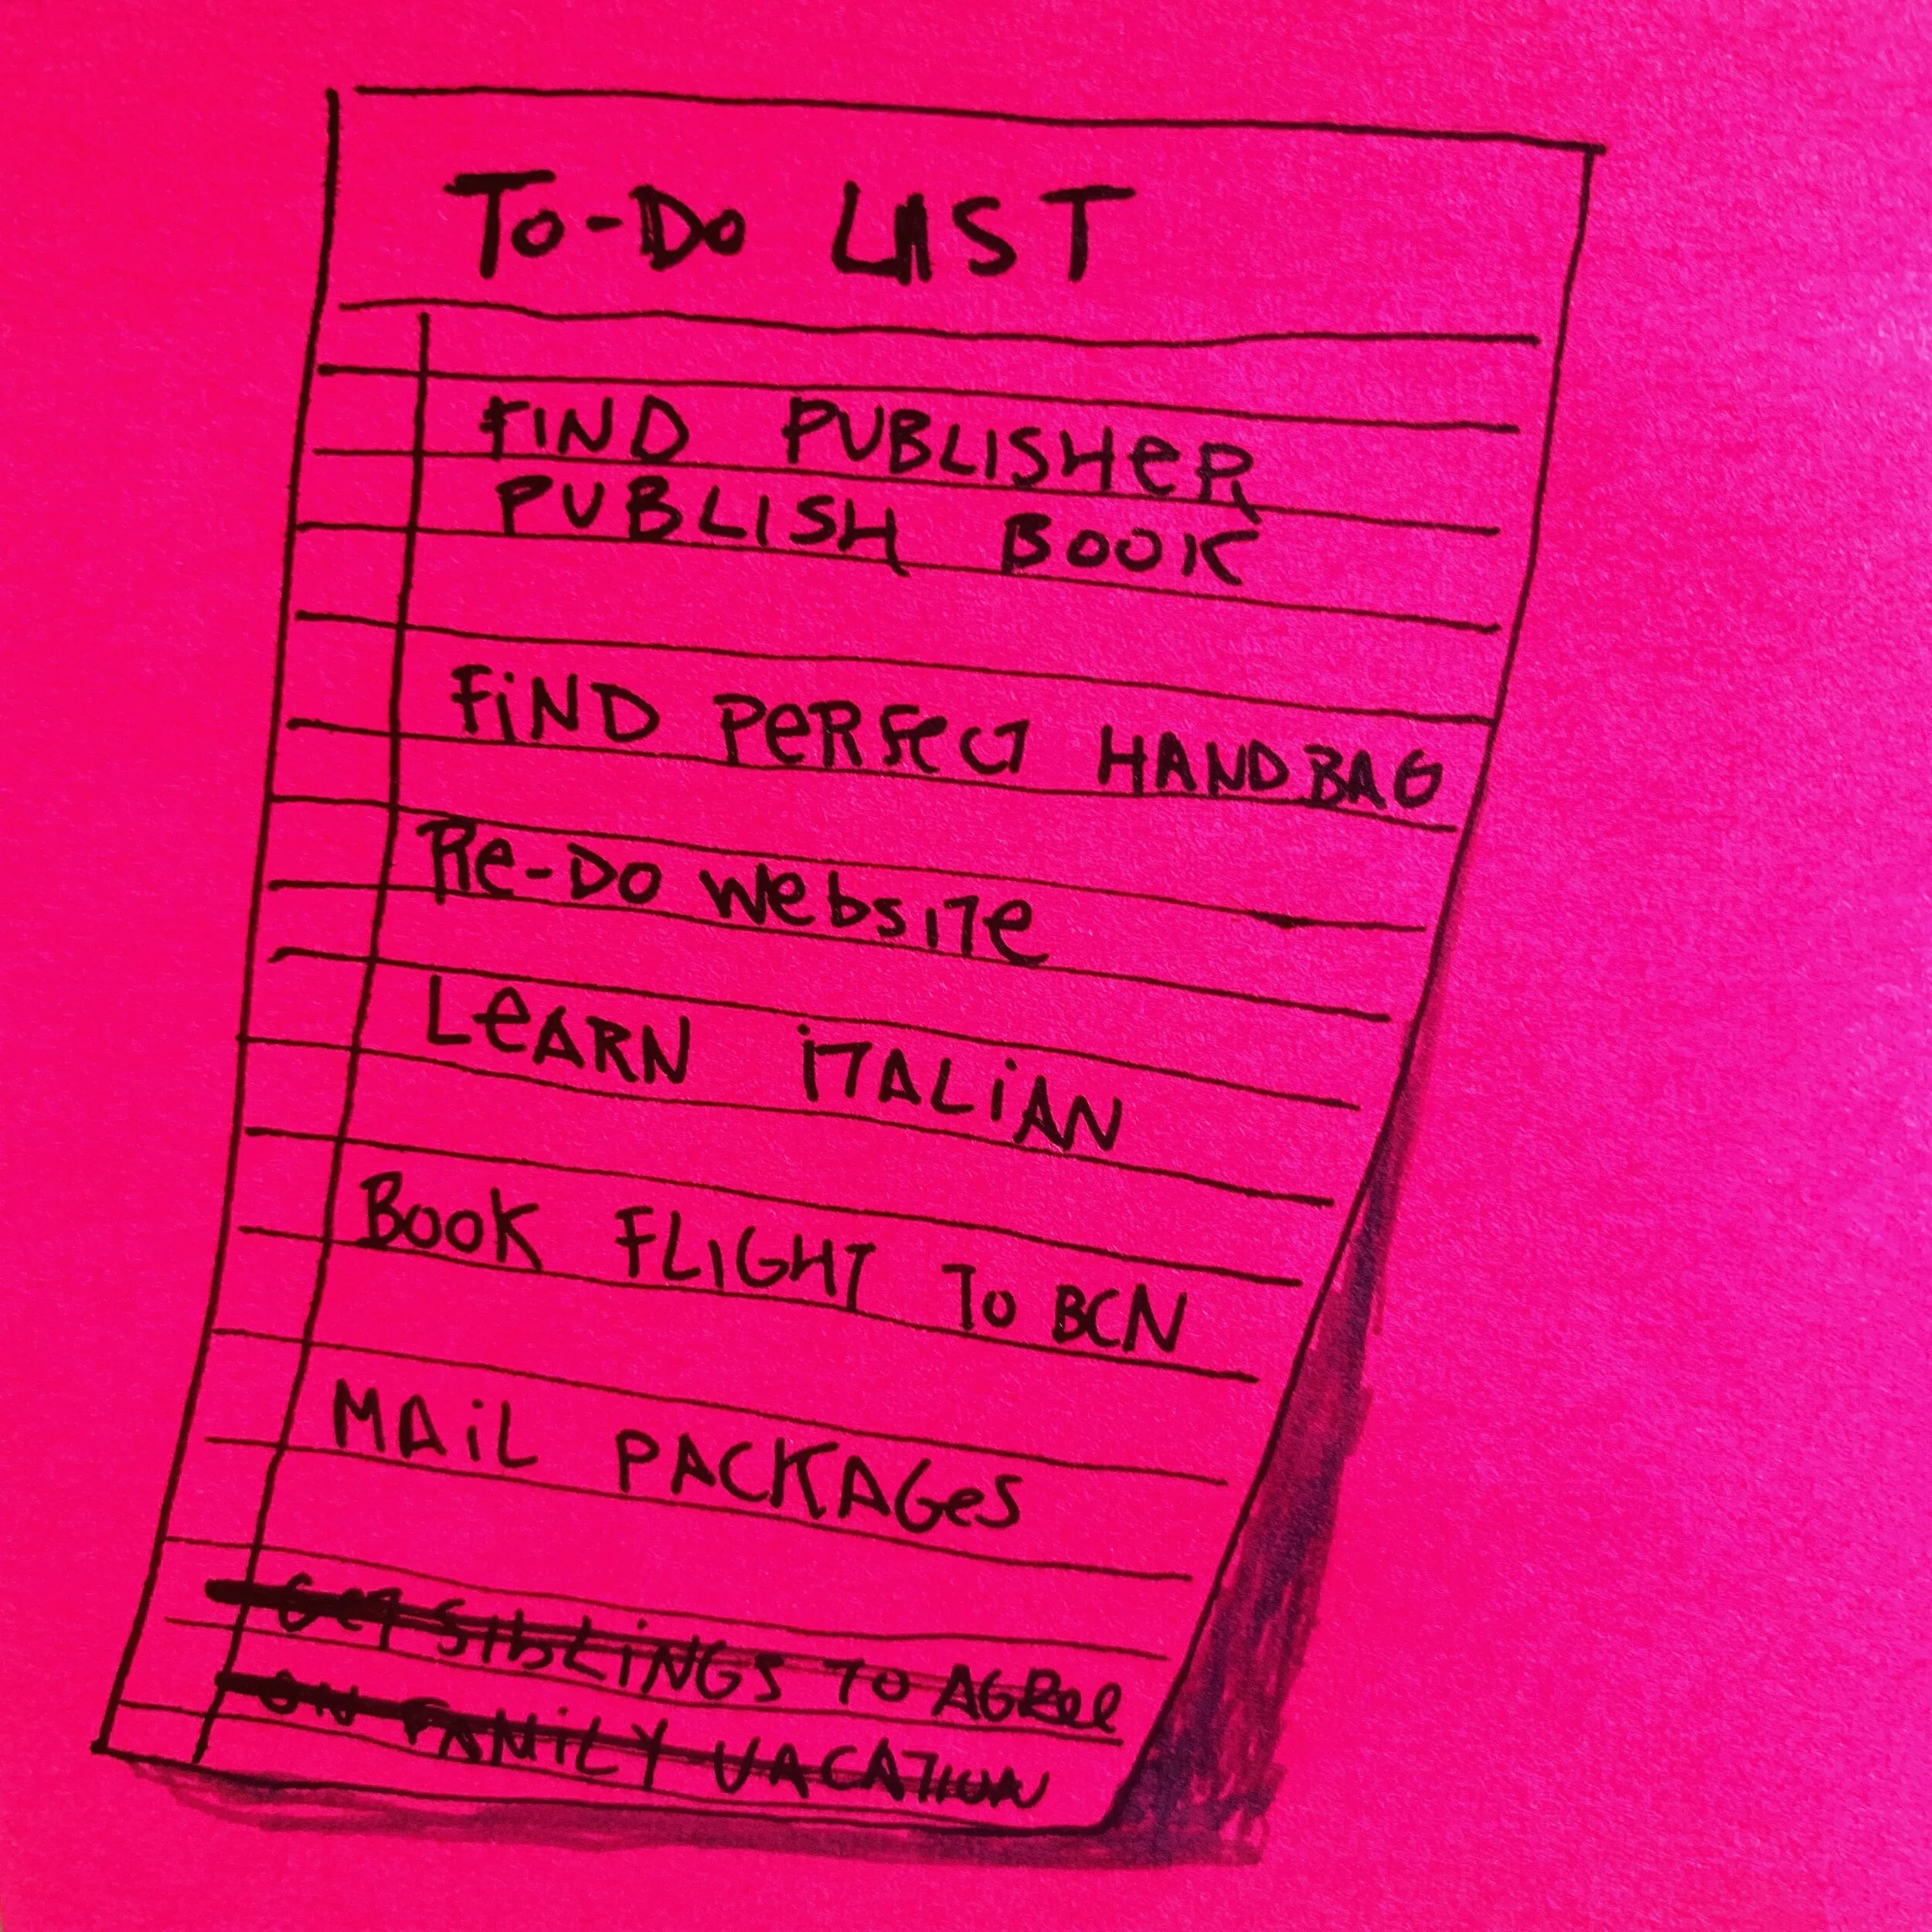 To-Do LIST
FIND PUBLISHER
PUBLISH BOOK
FIND PERFECT HANDBAG
Re-Do website
LEARN ITALIAN
BOOK FLIGHT TO BCN
MAIL PACKAGES
GET SIBLINGS TO AGREE
ON FAMILY VACATION